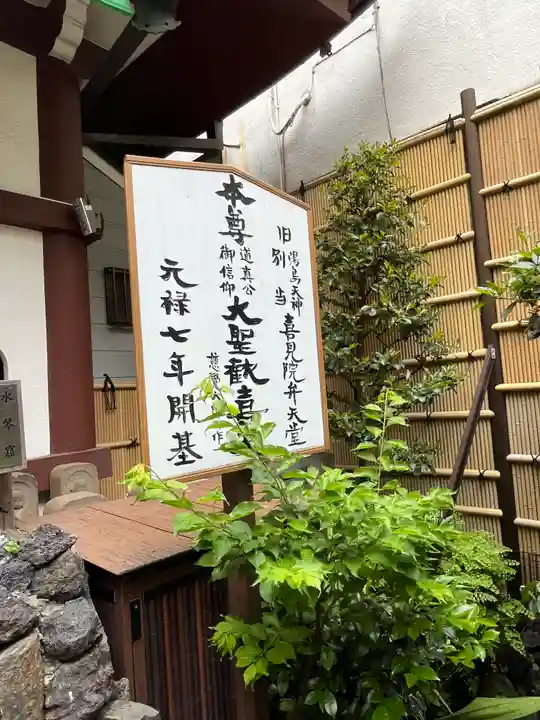 湯島天神
旧別当 喜見院弁天堂
本尊 道真公御信仰 大聖歓喜
作
元禄七年開基
水琴窟